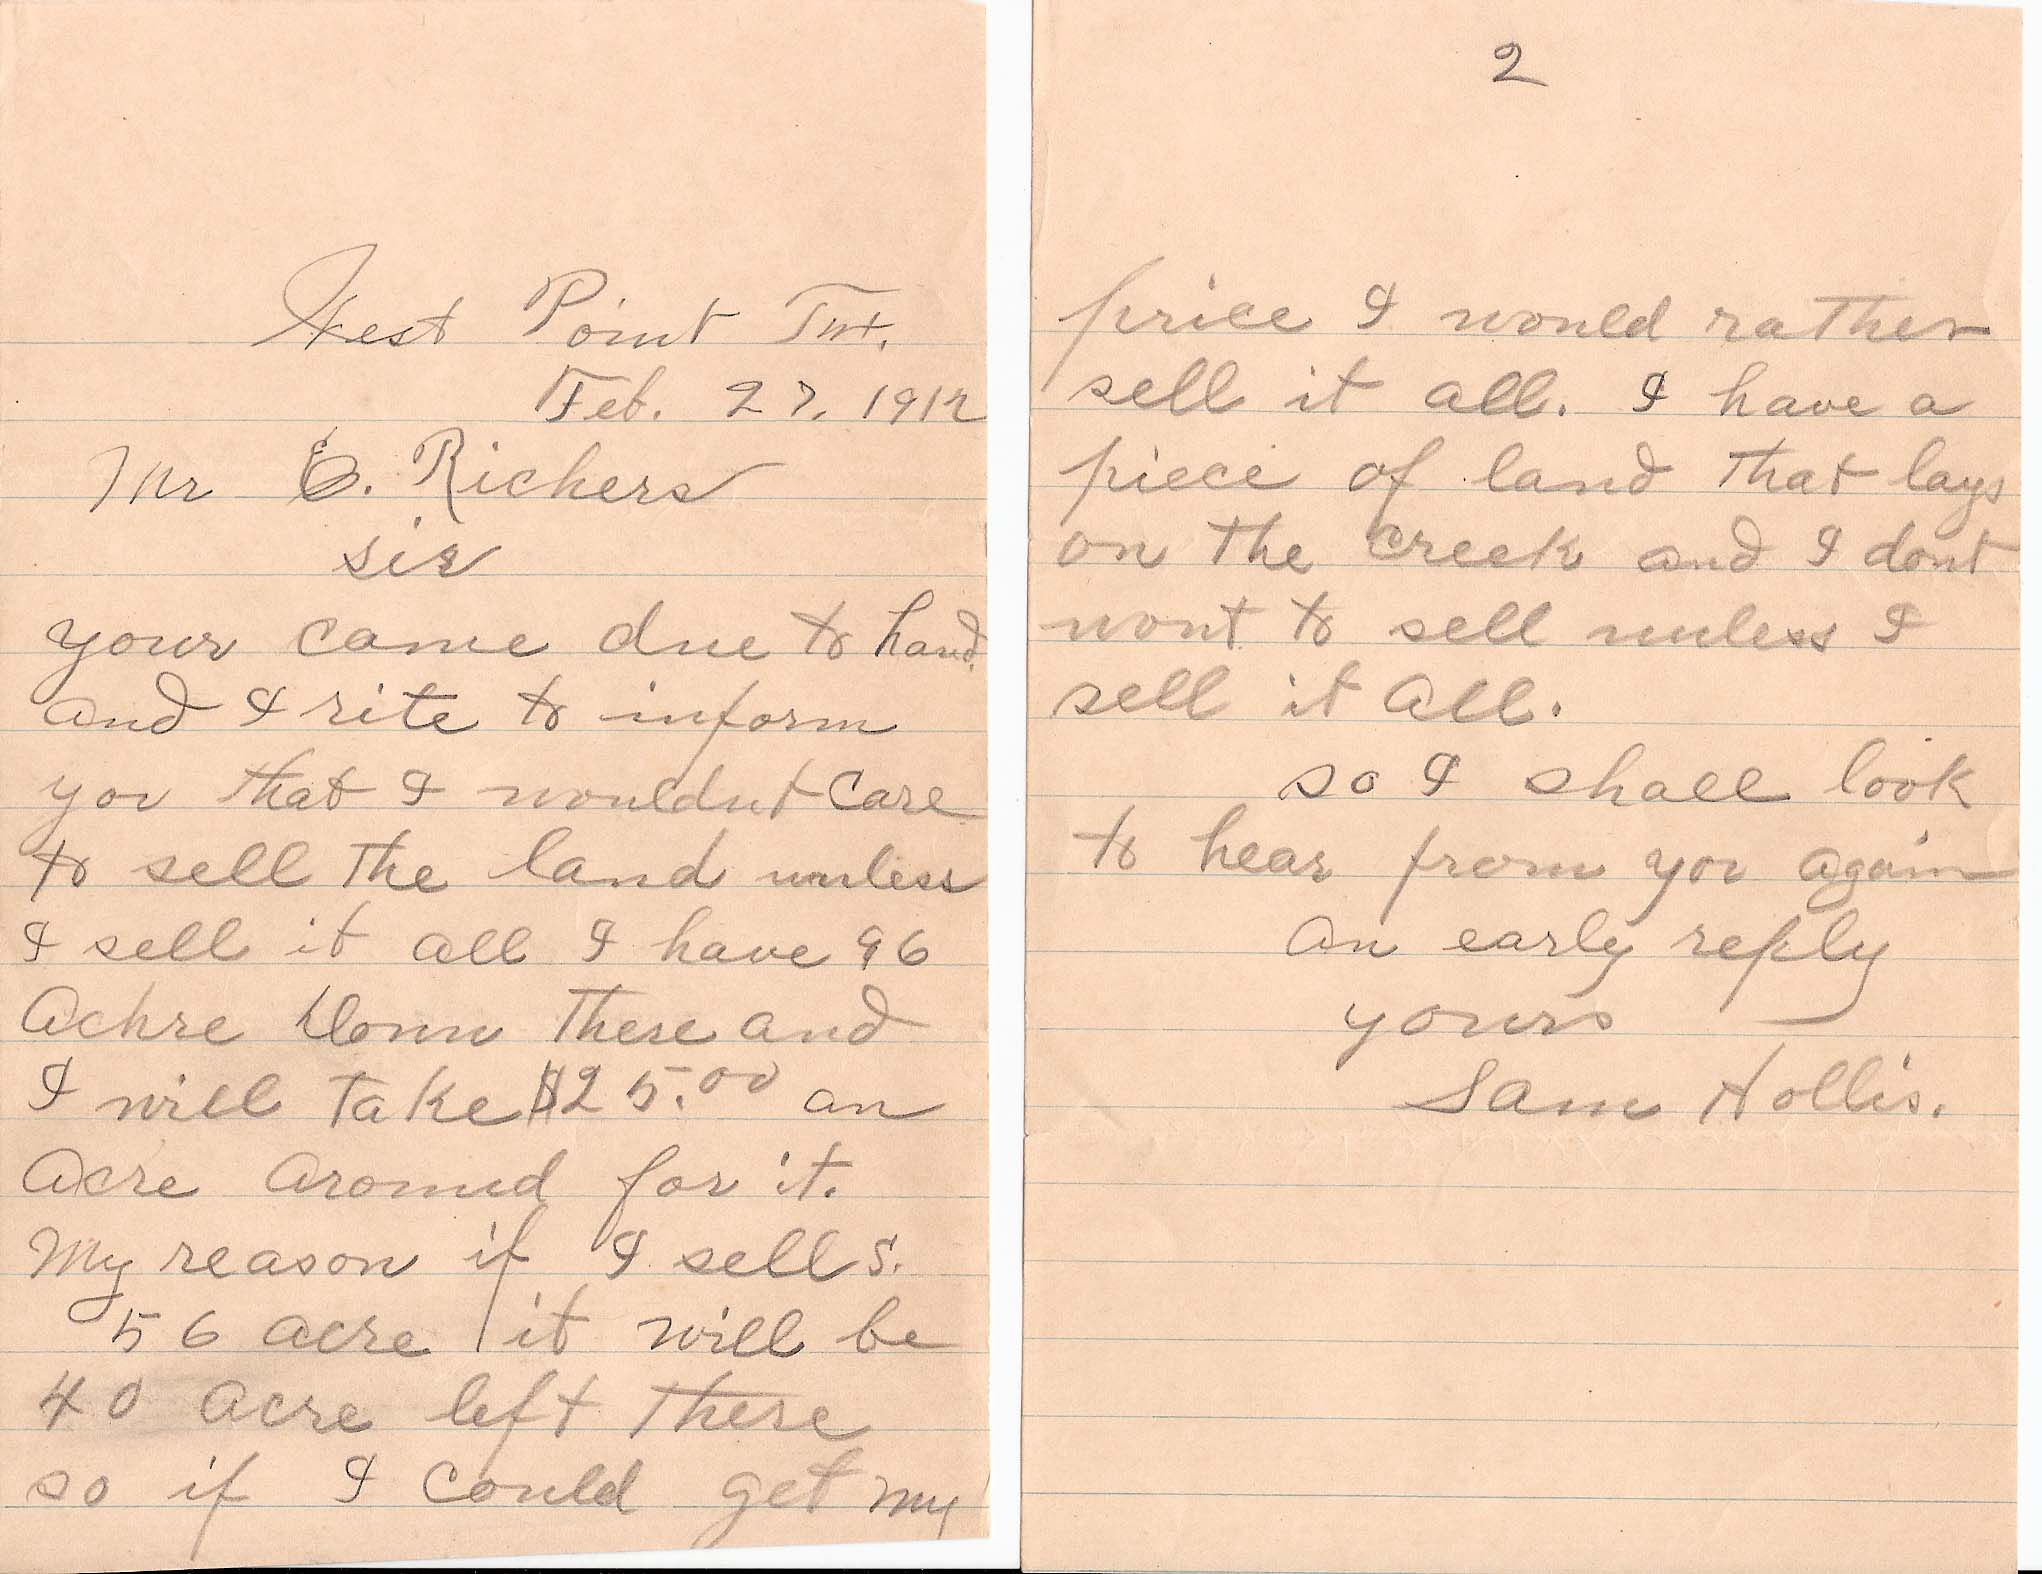 West Point Tex.
Feb. 27, 1912
Mr E. Richers
sir
your came due to hand
and I rite to inform
you that I wouldnt care
to sell the land unless
I sell it all I have 96
Achre Down There and
I will Take $25.00 an
Acre around for it.
My reason if I sell 5.
56 acre it will be
40 acre left There
so if I could get my
2
price I would rather
sell it all. I have a
piece of land that lays
on The creek and I dont
wont to sell unless I
sell it all.
so I shall look
to hear from you again
an early reply
yours
Sam Hollis.